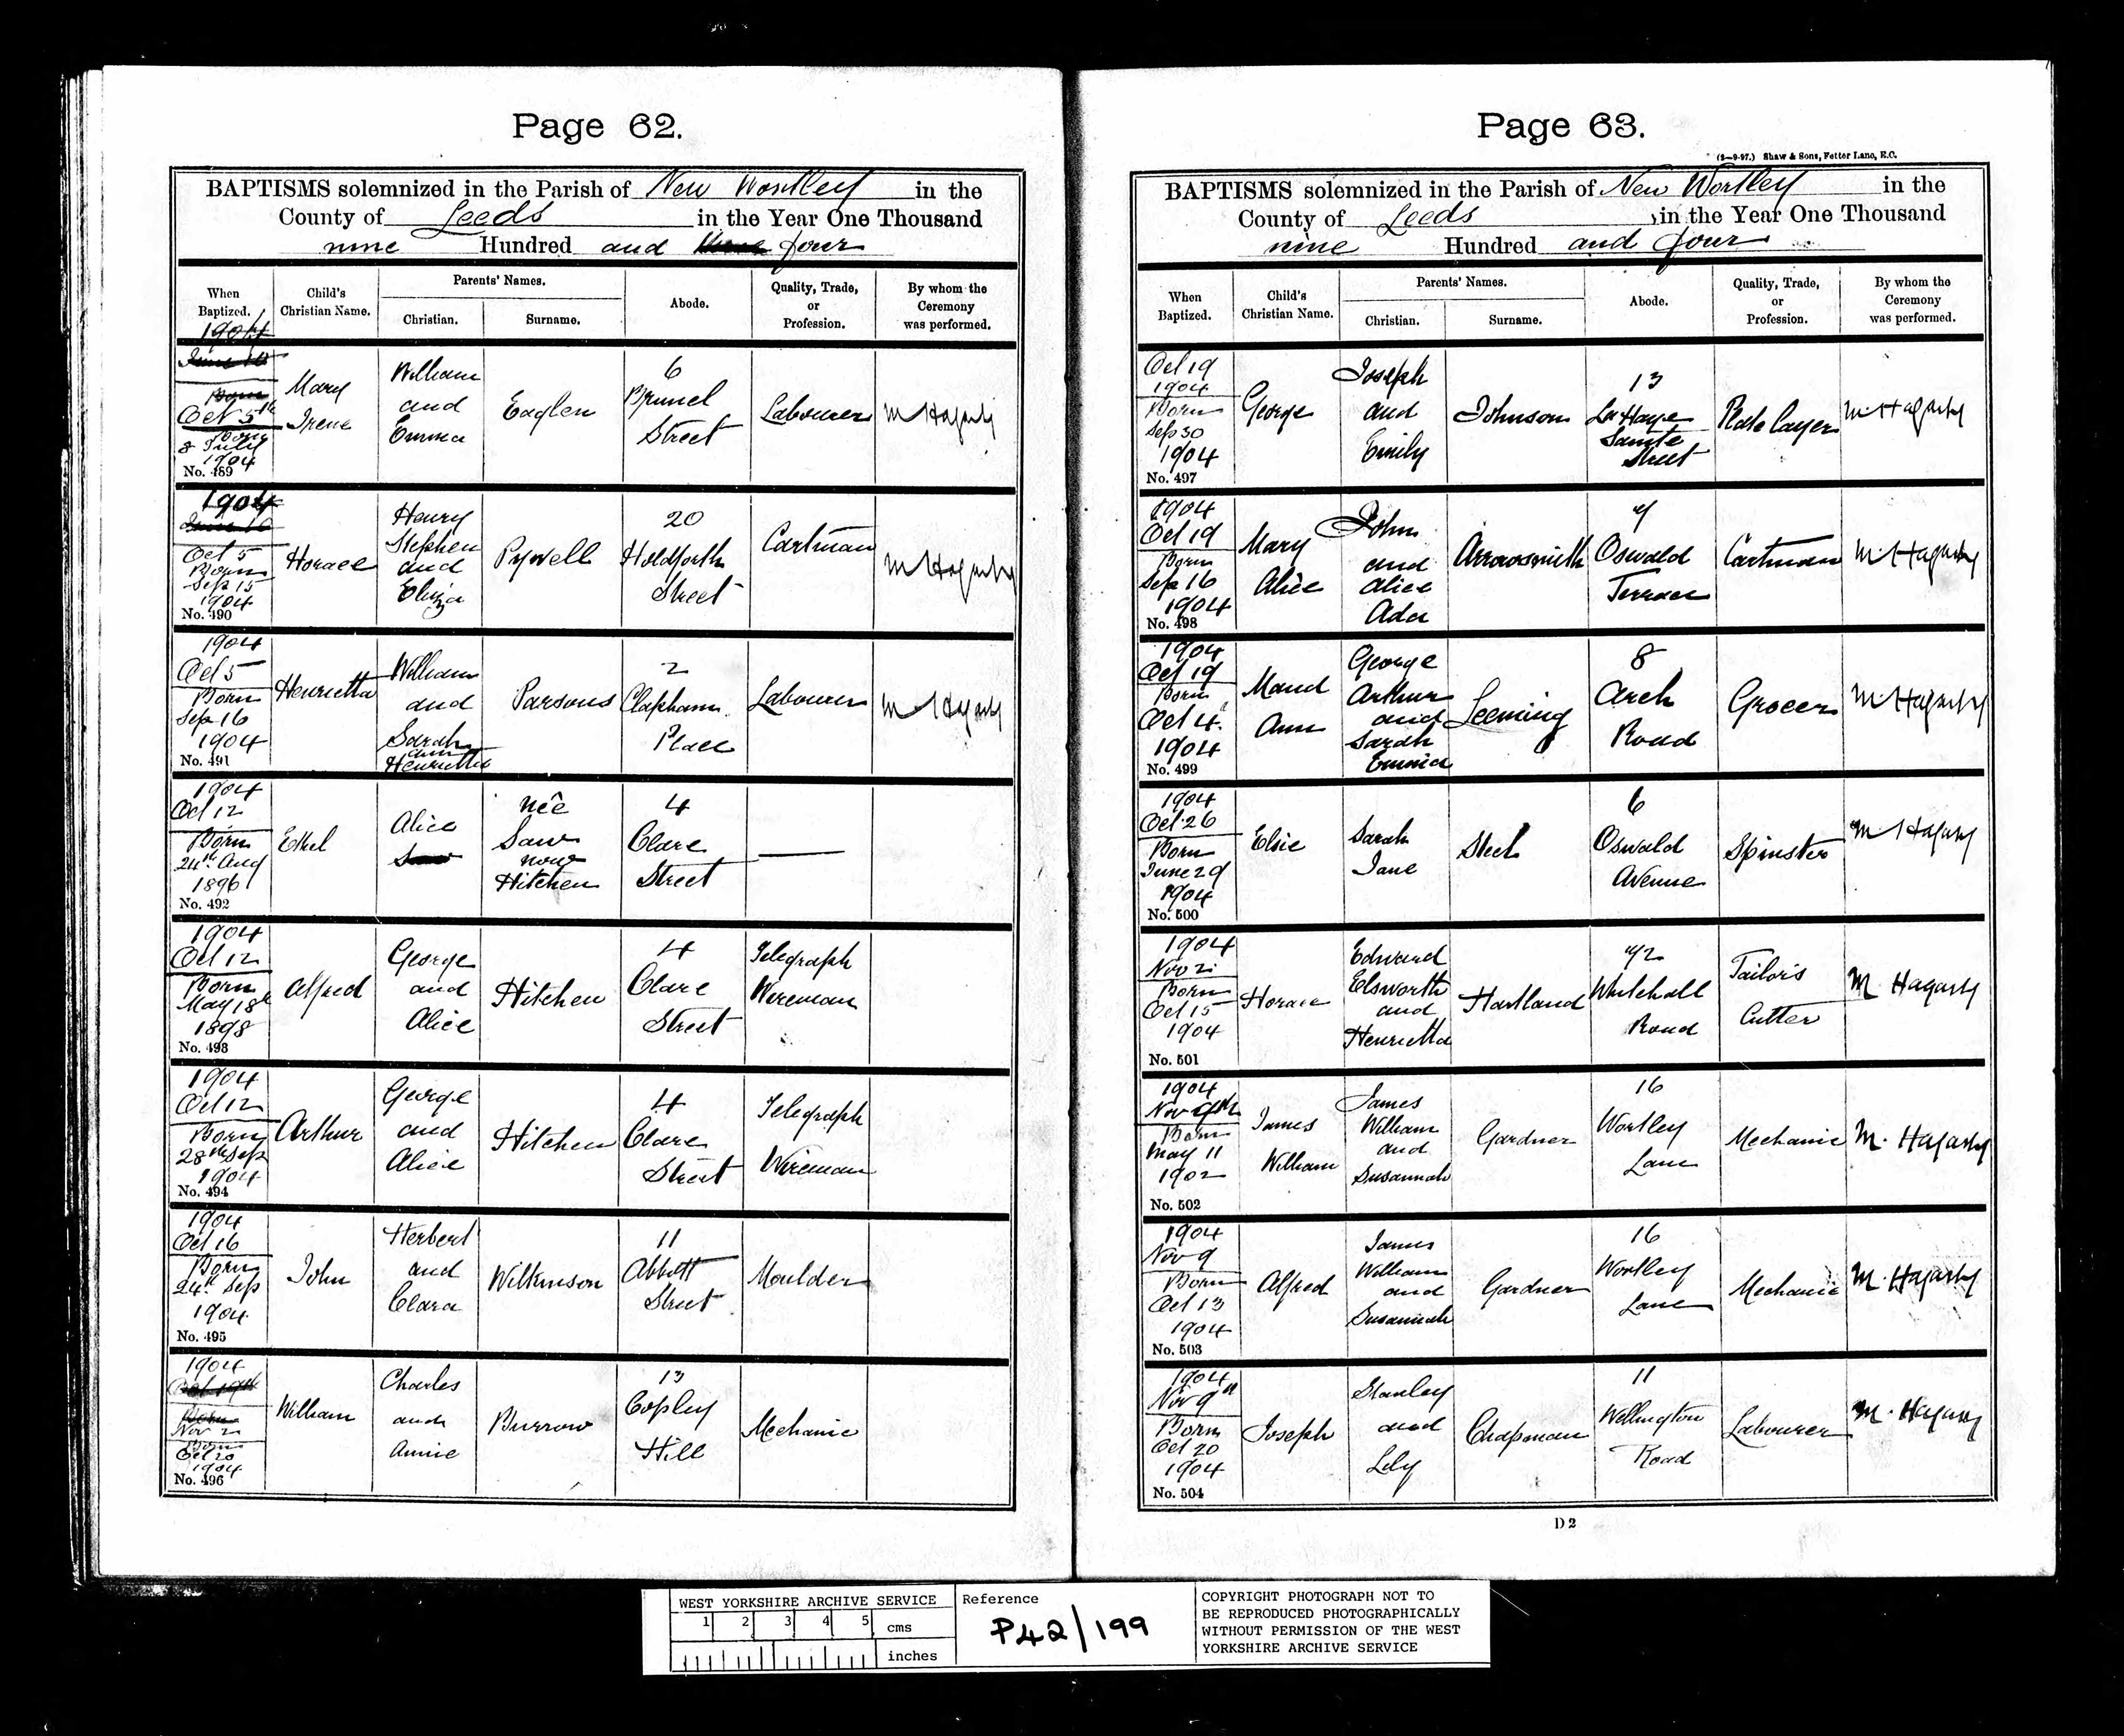 Page 62.
BAPTISMS solemnized in the Parish of New Wortley in the
County of Leeds in the Year One Thousand
nine Hundred and four
When Baptized.
Child's Christian Name.
Parents' Names.
Christian.
Surname.
Abode.
Quality, Trade, or Profession.
By whom the Ceremony was performed.
1904
Oct 5th
Born
8 July
1904
No. 489
Mary
Irene
William
and
Emma
Eaglen
6
Brunel
Street
Labourer
M Hagarty
1904
Oct 5
Born
Sep 15
1904
No. 490
Horace
Henry
Stephen
and
Eliza
Pywell
20
Holdforth
Street
Cartman
M Hagarty
1904
Oct 5
Born
Sep 16
1904
No. 491
Henrietta
William
and
Sarah
Ann
Henrietta
Parsons
2
Clapham
Place
Labourer
M Hagarty
1904
Oct 12
Born
24th Aug
1896
No. 492
Ethel
Alice
née
Saw
now
Hitchen
4
Clare
Street
1904
Oct 12
Born
May 18th
1898
No. 493
Alfred
George
and
Alice
Hitchen
4
Clare
Street
Telegraph
Wireman
1904
Oct 12
Born
28th Sep
1904
No. 494
Arthur
George
and
Alice
Hitchen
4
Clare
Street
Telegraph
Wireman
1904
Oct 16
Born
24th Sep
1904
No. 495
John
Herbert
and
Clara
Wilkinson
11
Abbott
Street
Moulder
1904
Nov 2
Born
Oct 20
1904
No. 496
William
Charles
and
Annie
Burrow
13
Copley
Hill
Mechanic
Page 63.
(2—9-97.) Shaw & Sons, Fetter Lane, E.C.
BAPTISMS solemnized in the Parish of New Wortley in the
County of Leeds in the Year One Thousand
nine Hundred and four
When Baptized.
Child's Christian Name.
Parents' Names.
Christian.
Surname.
Abode.
Quality, Trade, or Profession.
By whom the Ceremony was performed.
Oct 19
1904
Born
Sep 30
1904
No. 497
George
Joseph
and
Emily
Johnson
13
La Haye
Sainte
Street
Plate layer
M Hagarty
1904
Oct 19
Born
Sep 16
1904
No. 498
Mary
Alice
John
and
Alice
Ada
Arrowsmith
7
Oswald
Terrace
Cartman
M Hagarty
1904
Oct 19
Born
Oct 4
1904
No. 499
Maud
Ann
George
Arthur
and
Sarah
Emma
Leeming
8
Arch
Road
Grocer
M Hagarty
1904
Oct 26
Born
June 29
1904
No. 500
Elsie
Sarah
Jane
Steel
6
Oswald
Avenue
Spinster
M Hagarty
1904
Nov 2
Born
Oct 15
1904
No. 501
Horace
Edward
Elsworth
and
Henrietta
Hartland
72
Whitehall
Road
Tailor's
Cutter
M Hagarty
1904
Nov 9th
Born
May 11
1902
No. 502
James
William
James
William
and
Susannah
Gardner
16
Wortley
Lane
Mechanic
M. Hagarty
1904
Nov 9
Born
Oct 13
1904
No. 503
Alfred
James
William
and
Susannah
Gardner
16
Wortley
Lane
Mechanic
M. Hagarty
1904
Nov 9th
Born
Oct 20
1904
No. 504
Joseph
Stanley
and
Lily
Chapman
11
Wellington
Road
Labourer
M. Hagarty
D 2
WEST YORKSHIRE ARCHIVE SERVICE
1 2 3 4 5 cms
inches
Reference
P42/199
COPYRIGHT PHOTOGRAPH NOT TO
BE REPRODUCED PHOTOGRAPHICALLY
WITHOUT PERMISSION OF THE WEST
YORKSHIRE ARCHIVE SERVICE